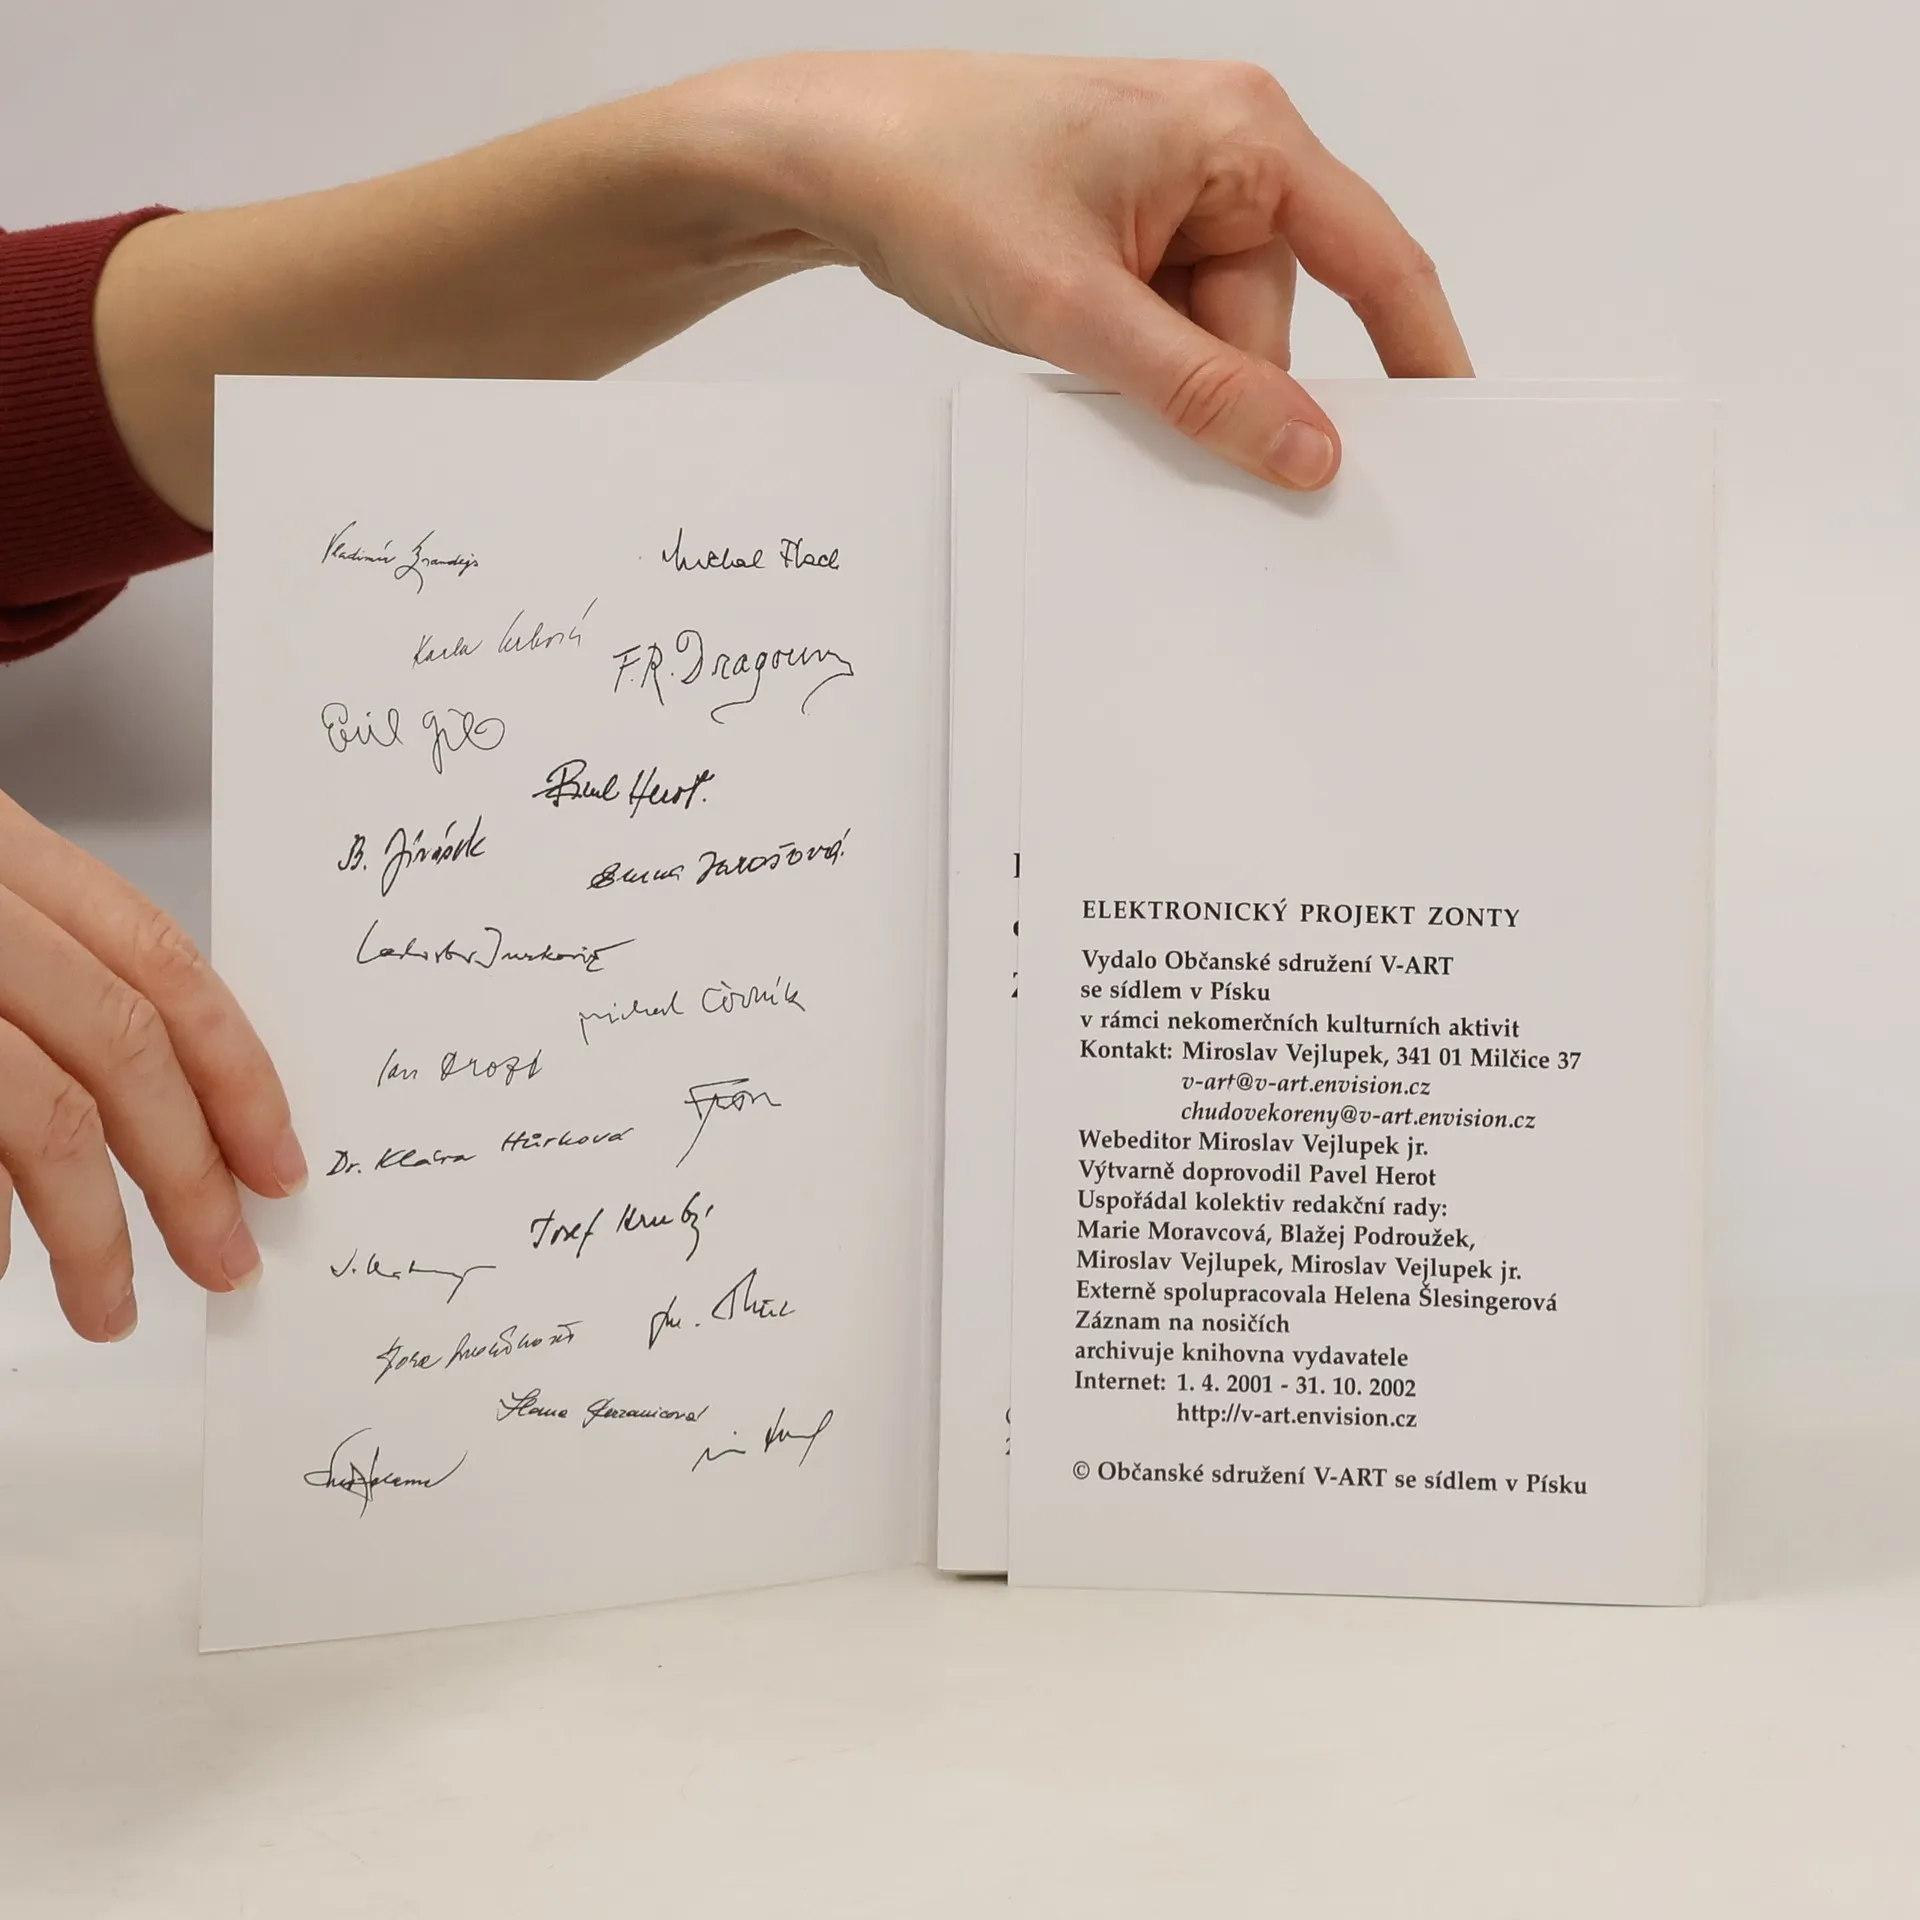 Vladimír Brandejs
Michal Flach
Karla
F.R. Dragoun
Emil
Pavel Herot.
B. Jirásek
Emma Jarošová.
Ladislav Jurkovič
michal Čìrník
Jan Drozd
Dr. Klára Hůrková
Fron
Josef Hrubý
Hana
ELEKTRONICKÝ PROJEKT ZONTY
Vydalo Občanské sdružení V-ART
se sídlem v Písku
v rámci nekomerčních kulturních aktivit
Kontakt: Miroslav Vejlupek, 341 01 Milčice 37
v-art@v-art.envision.cz
chudovekoreny@v-art.envision.cz
Webeditor Miroslav Vejlupek jr.
Výtvarně doprovodil Pavel Herot
Uspořádal kolektiv redakční rady:
Marie Moravcová, Blažej Podroužek,
Miroslav Vejlupek, Miroslav Vejlupek jr.
Externě spolupracovala Helena Šlesingerová
Záznam na nosičích
archivuje knihovna vydavatele
Internet: 1. 4. 2001 - 31. 10. 2002
http://v-art.envision.cz
© Občanské sdružení V-ART se sídlem v Písku